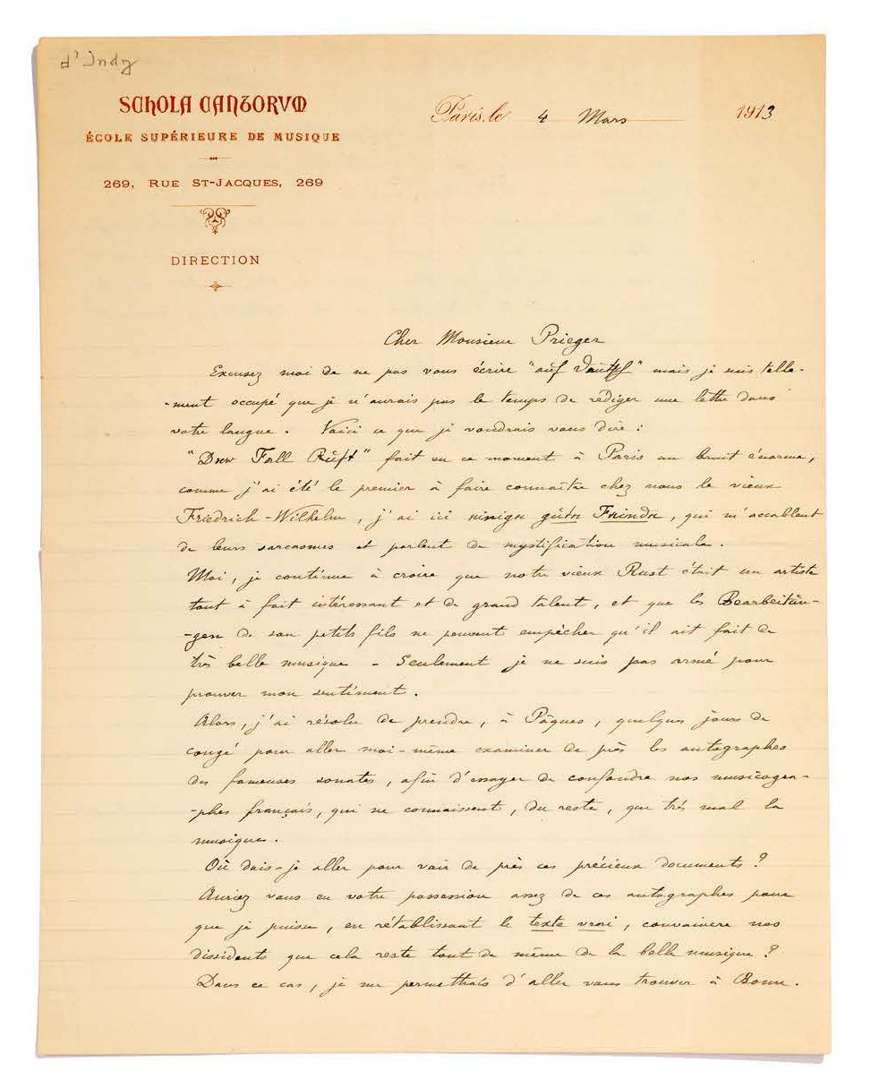 d'Indy
SCHOLA CANTORVM
ÉCOLE SUPÉRIEURE DE MUSIQUE
269, RUE ST-JACQUES, 269
DIRECTION
Paris, le 4 Mars 1913
Cher Monsieur Prieger
Excusez moi de ne pas vous écrire "auf Deutsch" mais je suis telle-
-ment occupé que je n'aurais pas le temps de rédiger une lettre dans
votre langue. Voici ce que je voudrais vous dire :
"Der Fall Rust" fait en ce moment à Paris un bruit énorme,
comme j'ai été le premier à faire connaître chez nous le vieux
Friedrich-Wilhelm, j'ai ici einige gute Freunde, qui m'accablent
de leurs sarcasmes et parlent de mystification musicale.
Moi, je continue à croire que notre vieux Rust était un artiste
tout à fait intéressant et de grand talent, et que les Bearbeitun-
-gen de son petit fils ne peuvent empêcher qu'il ait fait de
très belle musique - Seulement je ne suis pas armé pour
prouver mon sentiment.
Alors, j'ai résolu de prendre, à Pâques, quelques jours de
congé pour aller moi-même examiner de près les autographes
des fameuses sonates, afin d'essayer de confondre nos musicogra-
-phes français, qui ne connaissent, du reste, que très mal la
musique.
Où dois-je aller pour voir de près ces précieux documents ?
Auriez vous en votre possession assez de ces autographes pour
que je puisse, en rétablissant le texte vrai, convaincre nos
dissidents que cela reste tout de même de la belle musique ?
Dans ce cas, je me permettrais d'aller vous trouver à Bonn.